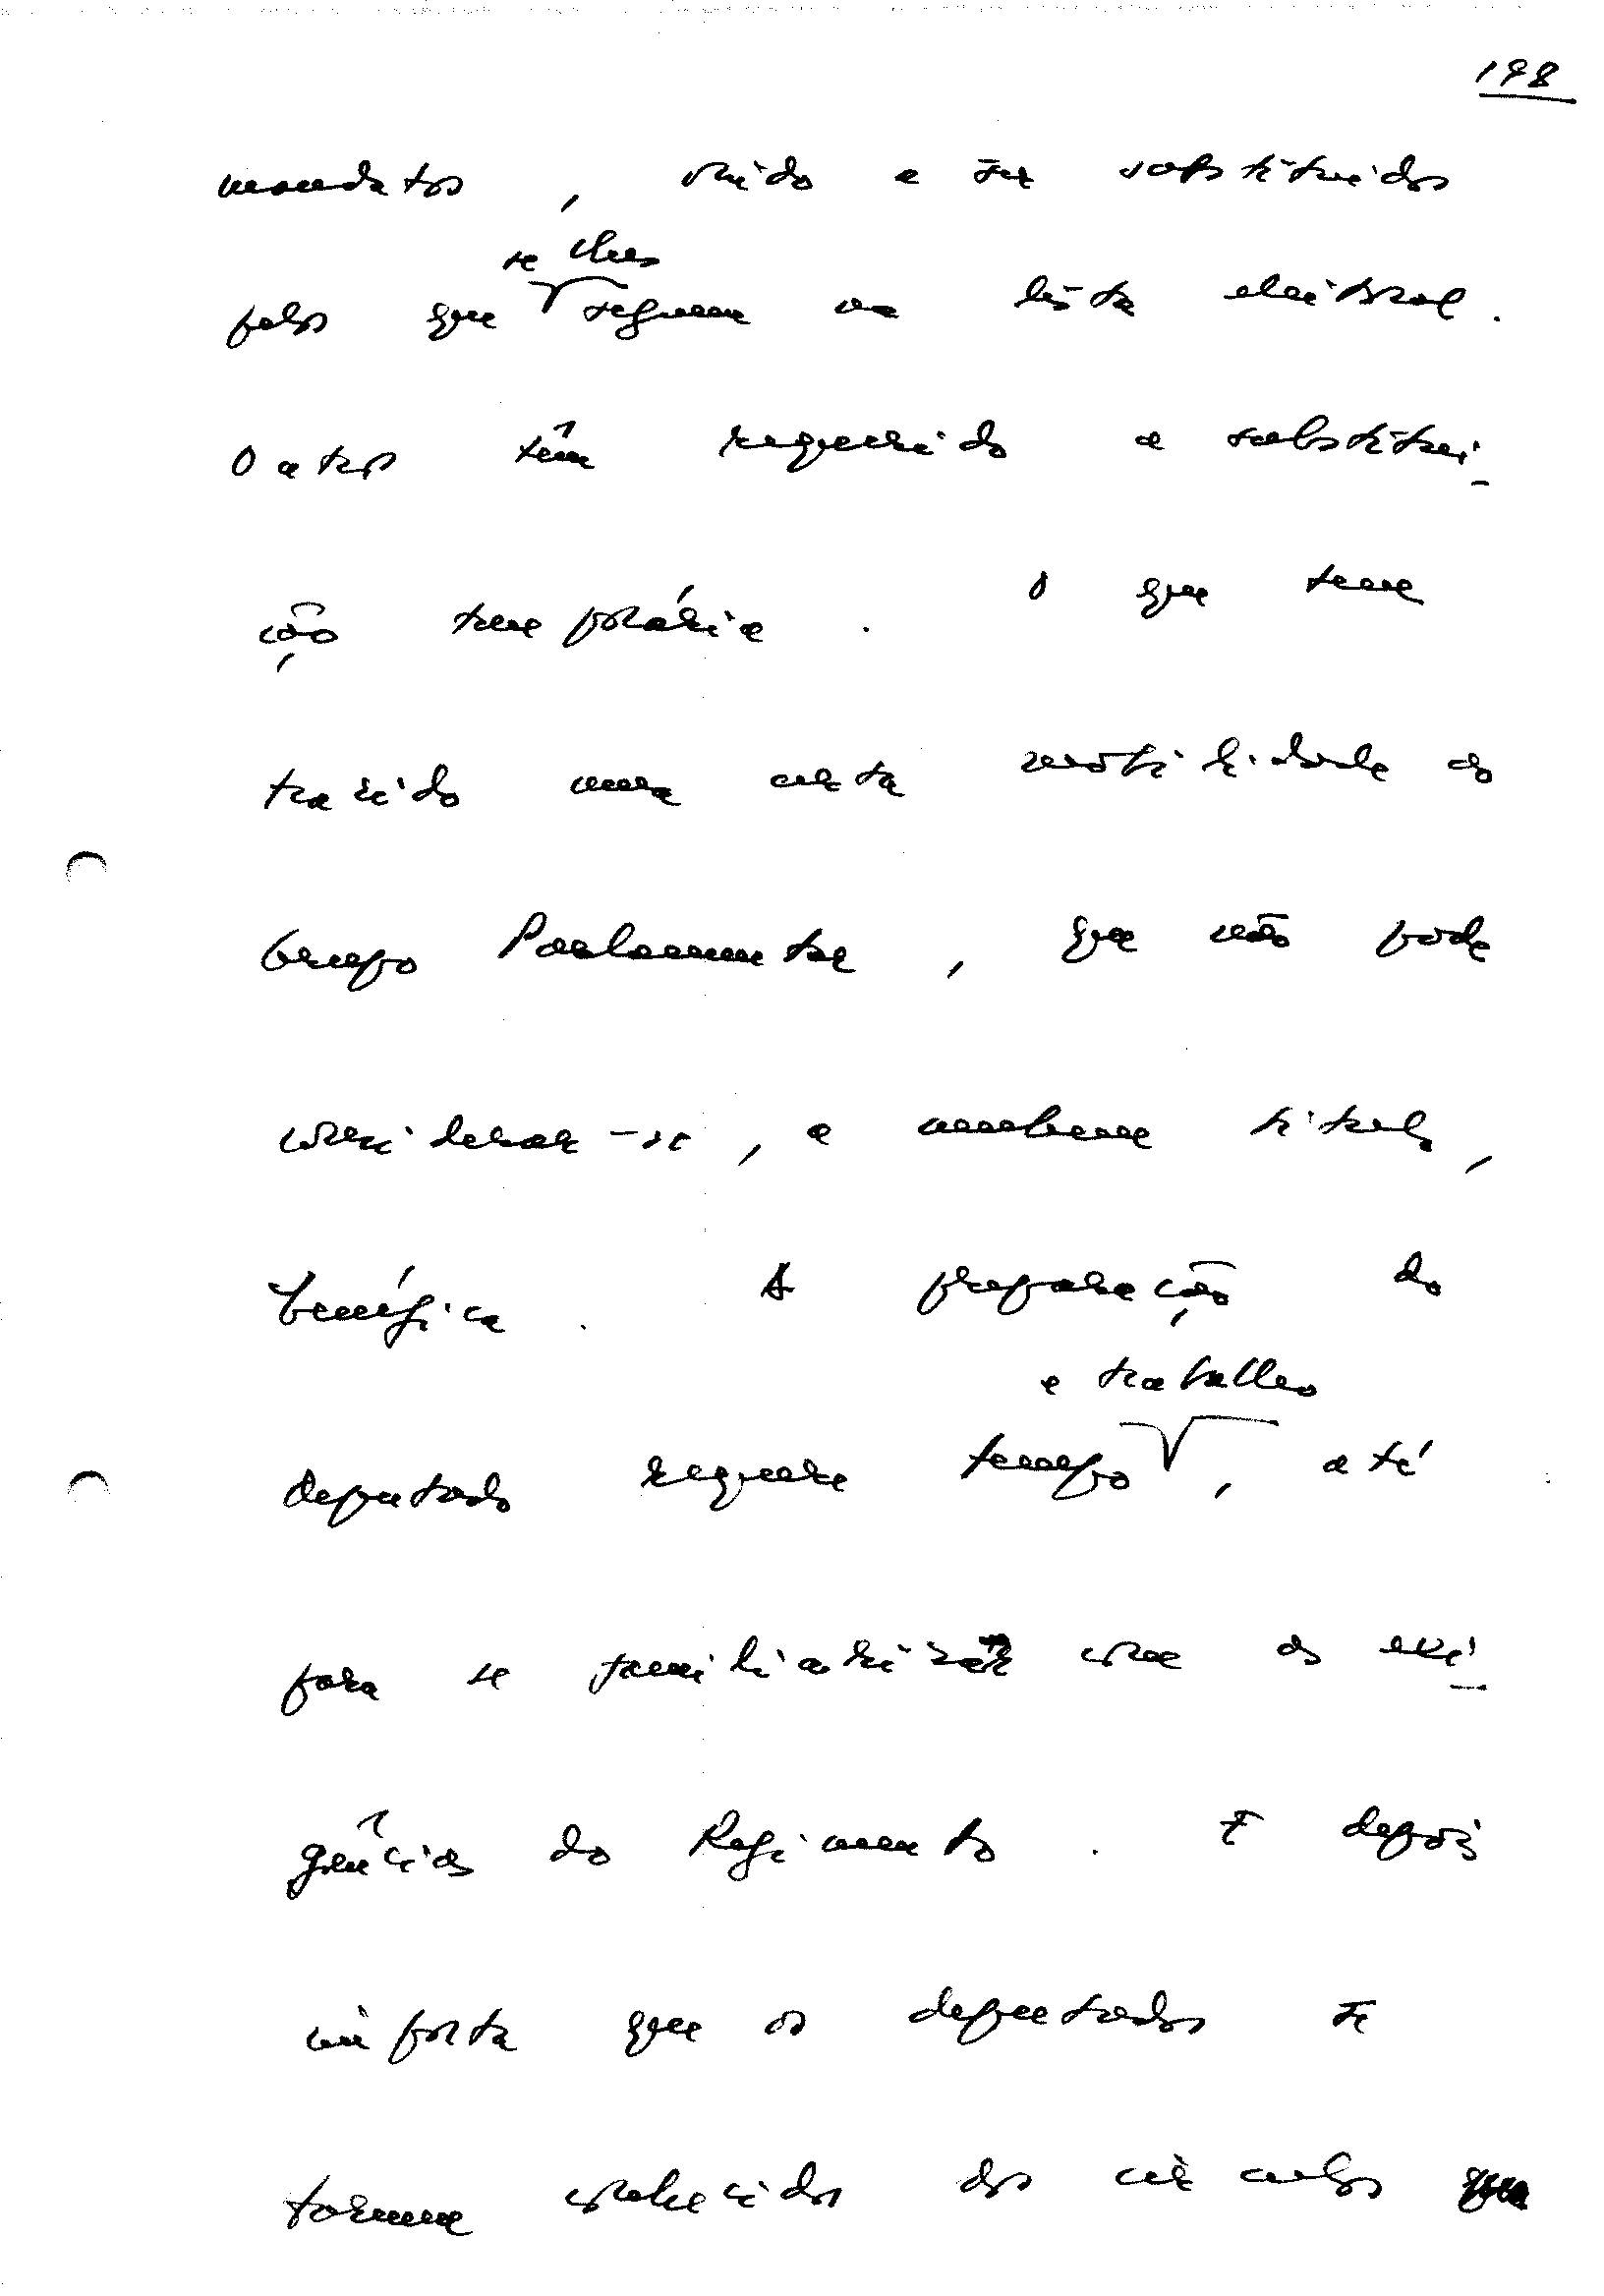 198
mandatos, vindo a ser substituídos
se lhes
pelos que seguem na lista eleitoral.
Outros têm requerido a substitui-
ção temporária. O que tem
trazido uma certa mobilidade ao
Grupo Parlamentar, que não pode
considerar-se, a nenhum título,
benéfica. A preparação do
e trabalho
deputado requere tempo, até
para se familiarizar com as exi-
gências do Regimento. E depois
importa que os deputados se
tornem conhecidos dos círculos que